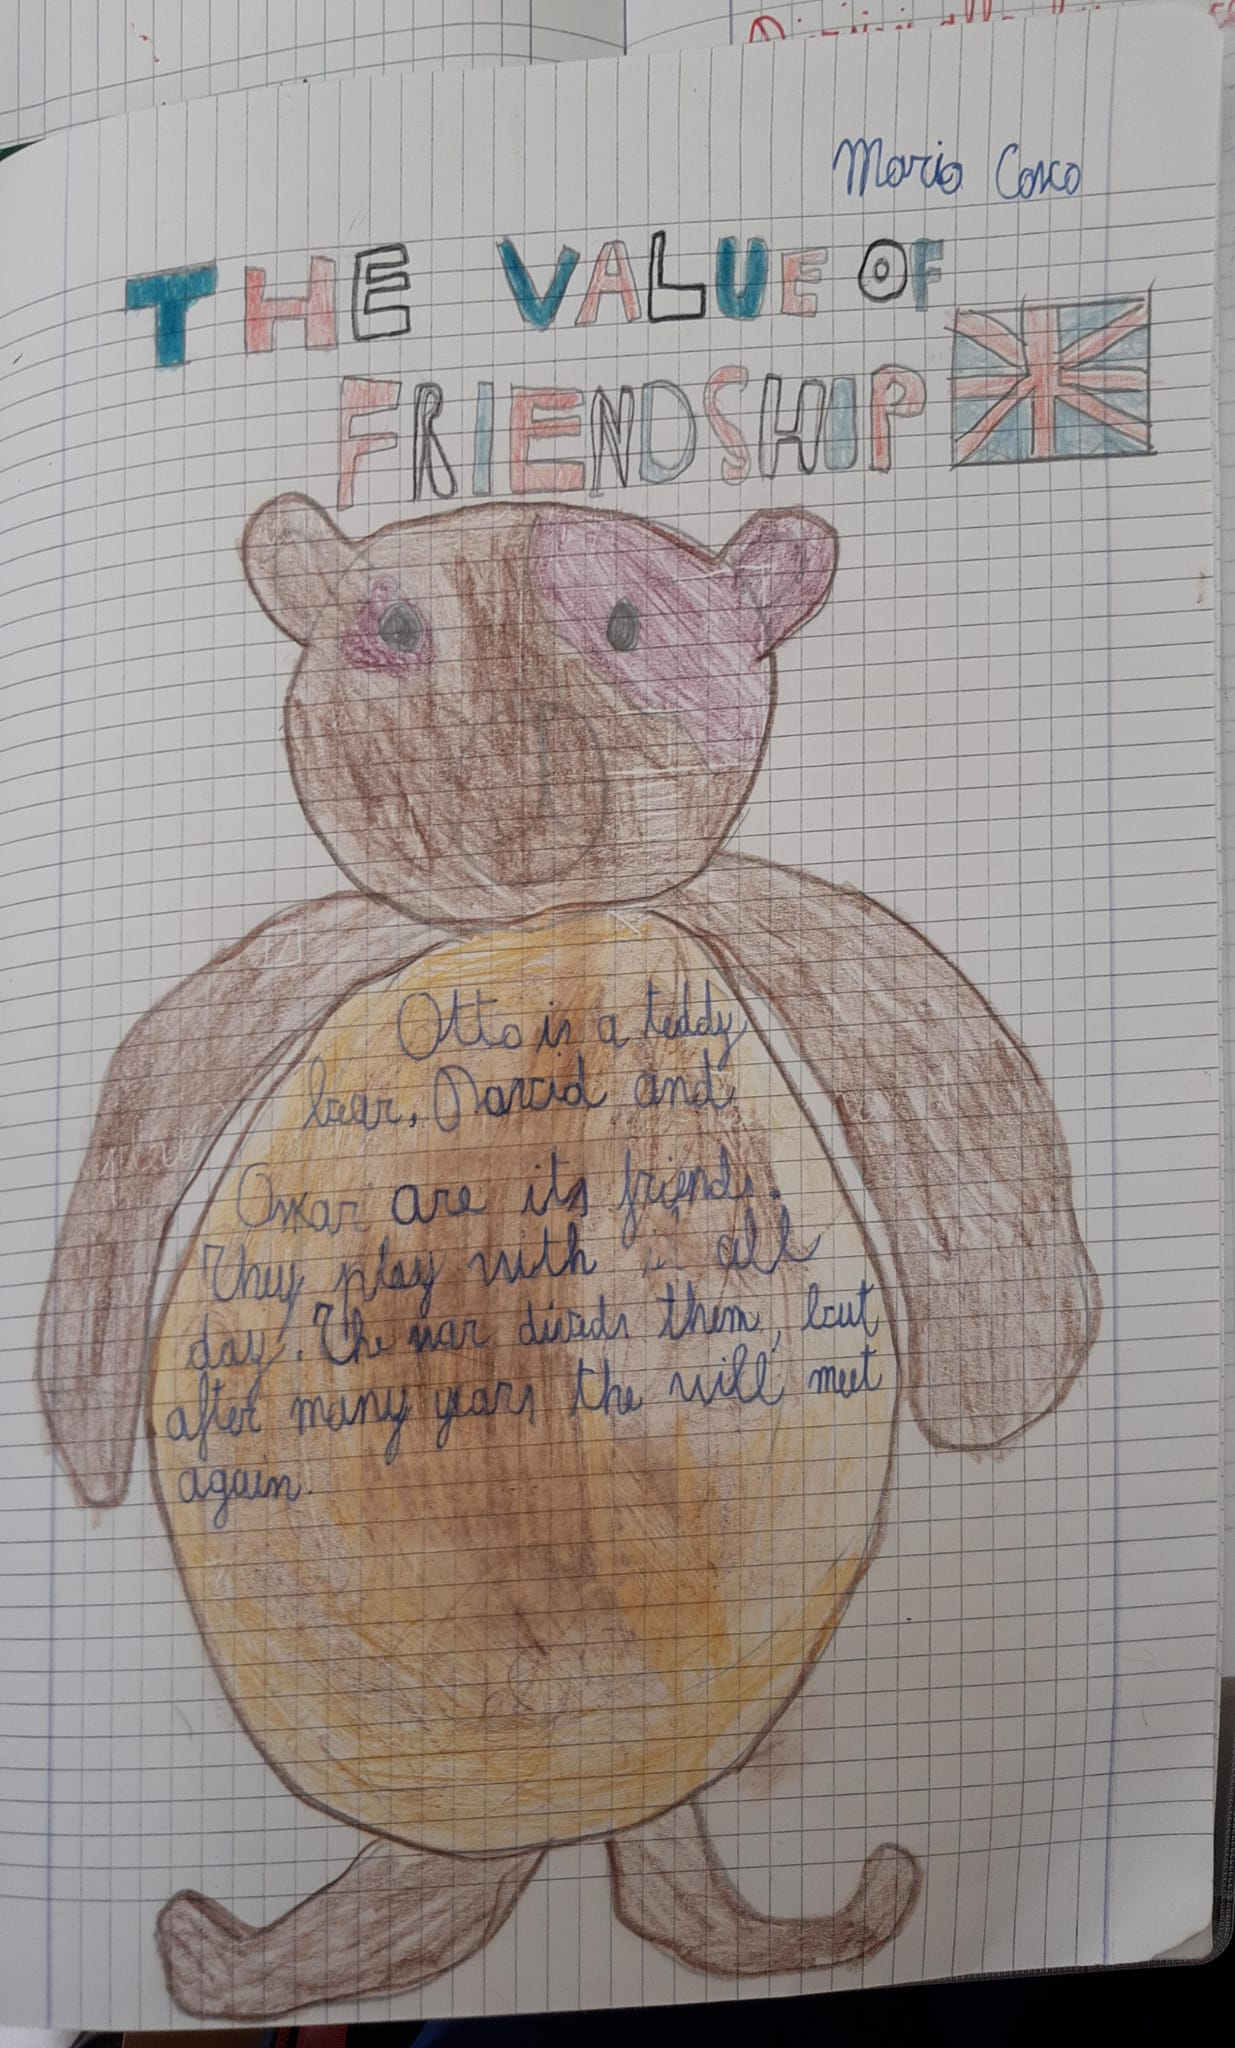 Mario Cosco
THE VALUE OF
FRIENDSHIP
Otto is a teddy
bear. David and
Oskar are its friends.
They play with it all
day. The war divids them, but
after many years the will meet
again.